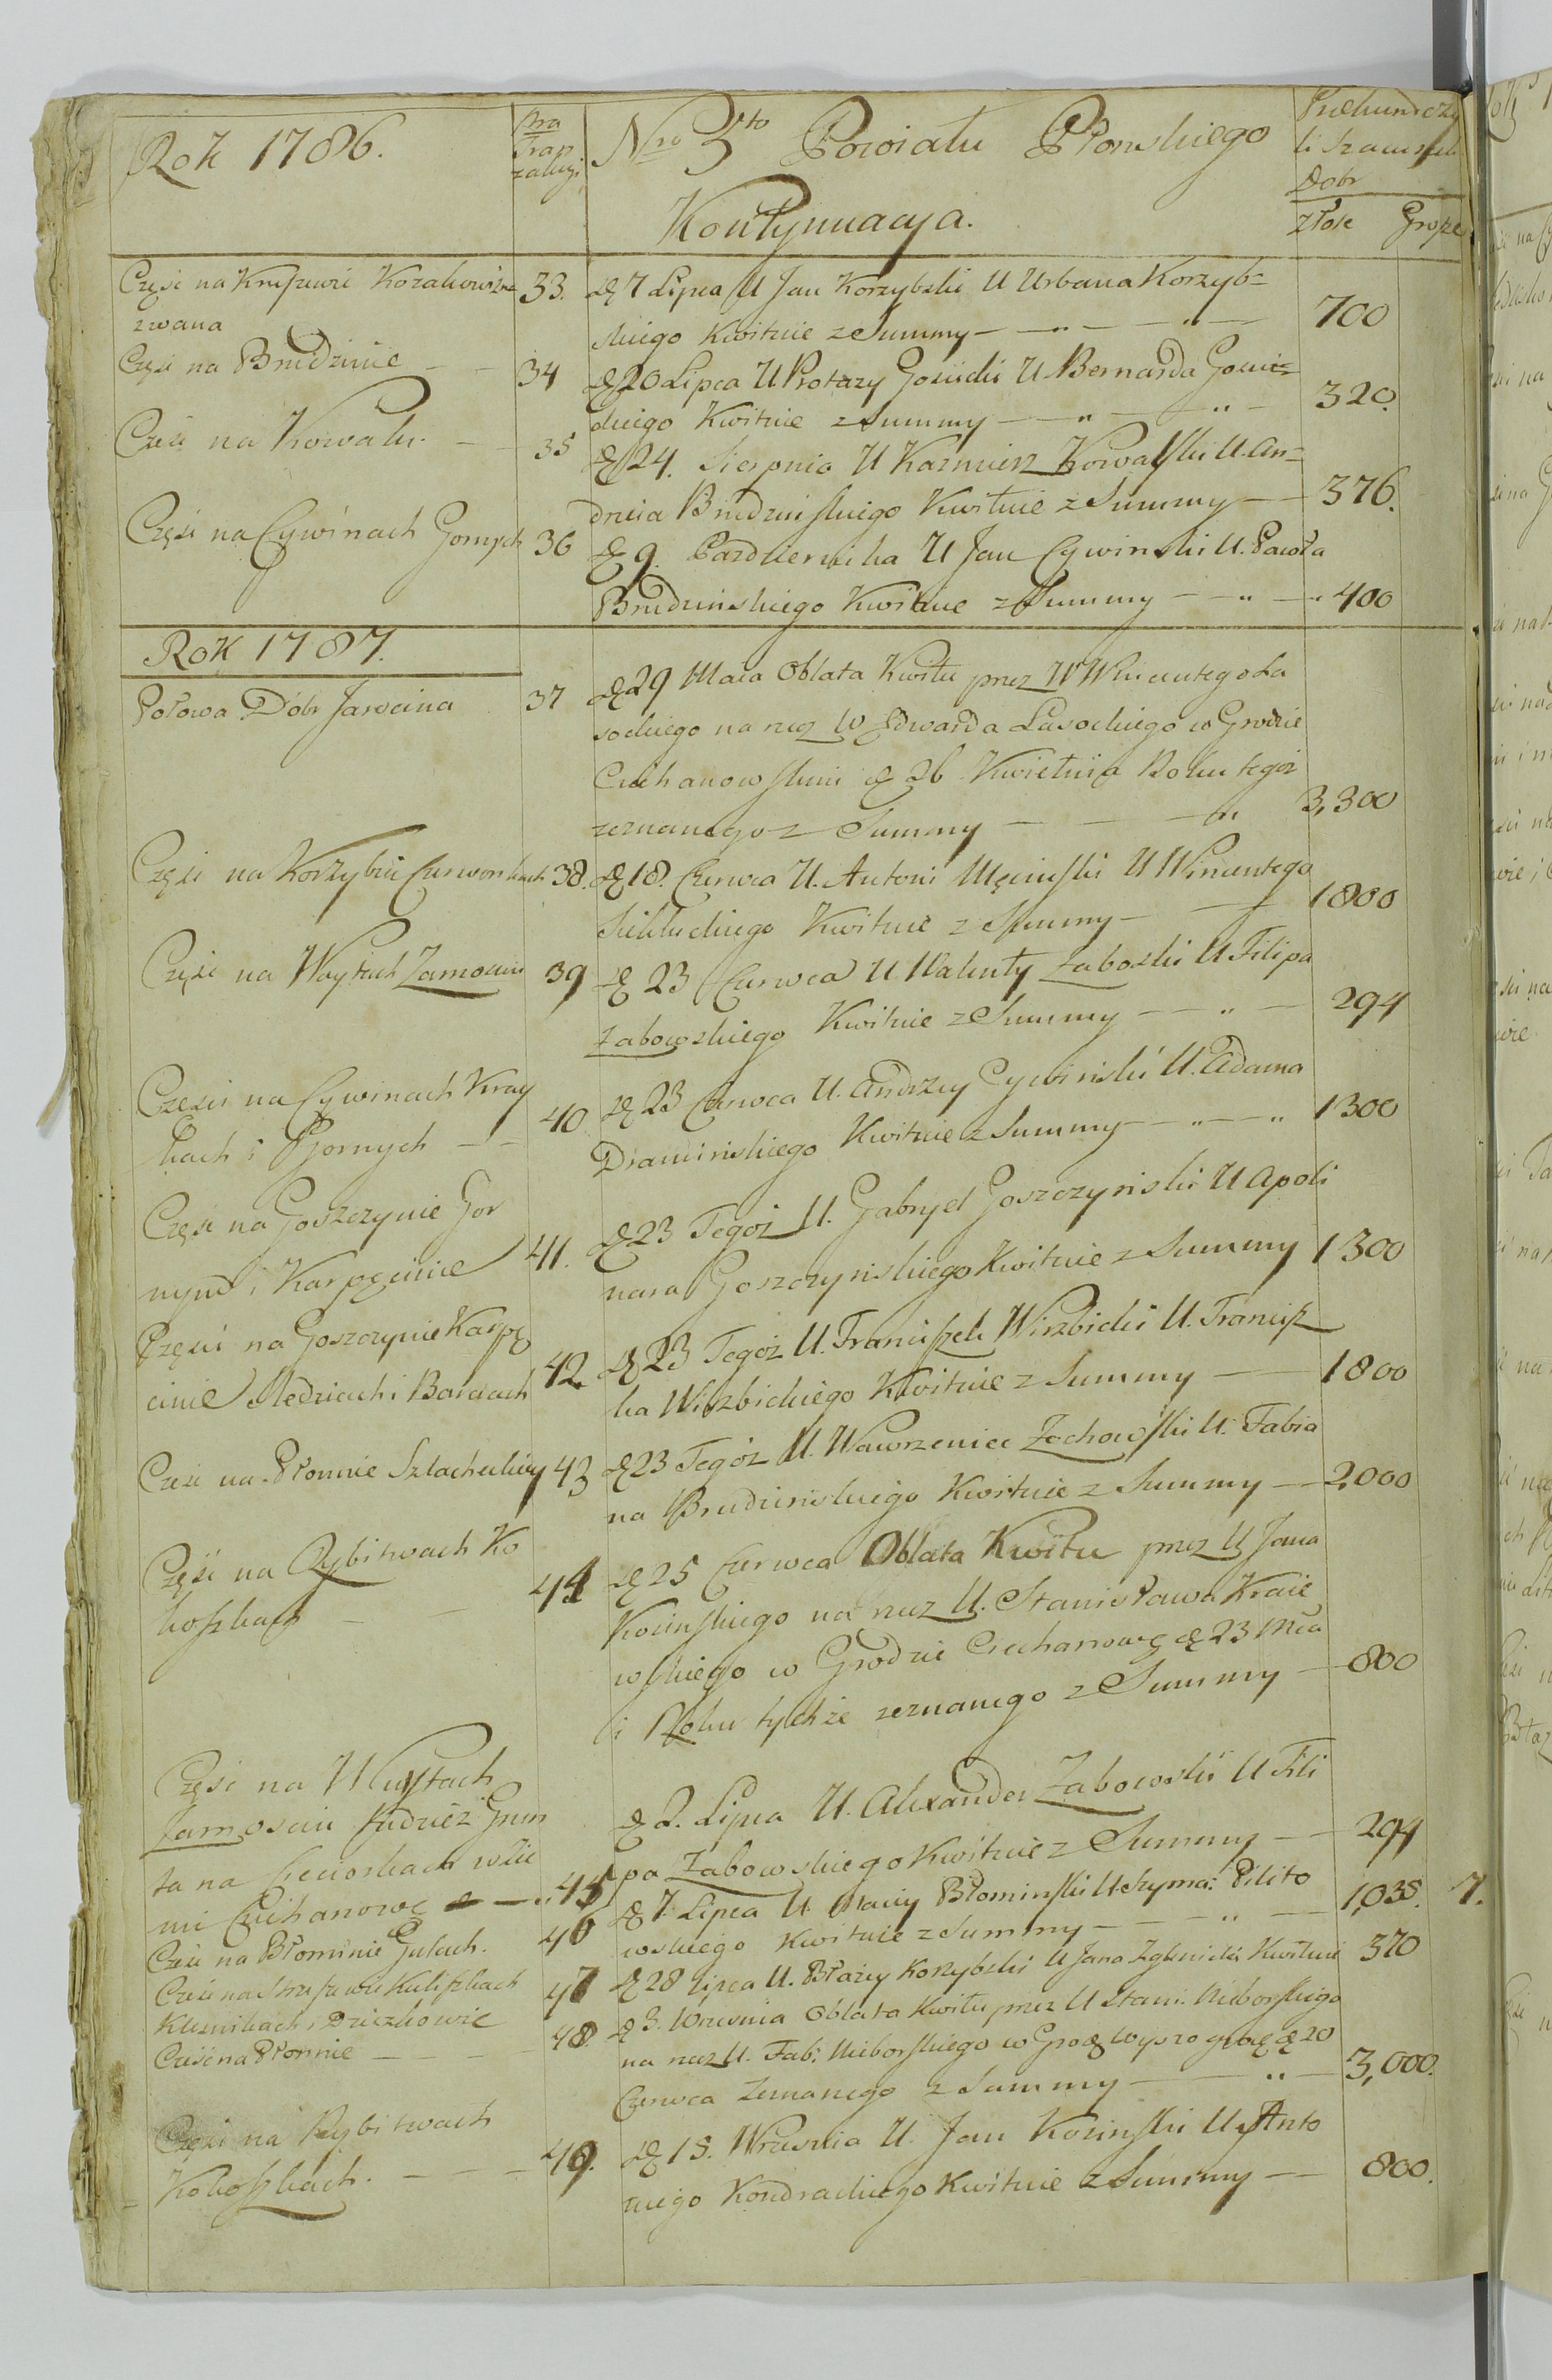 Rok 1786.
Nra
Tran
zakcyi
Nro 3tio Powiatu Płonskiego
Kontynuacya.
Dobr
złote Grosze
Częsc na Kryszewie Kozakowizna
zwana
33. d 7 Lipca U Jan Korzybski U Urbana Korzyb-
skiego Kwituie z Summy — „ — „ — 700
Częsc na Brudzinie — — 34
d 20 Lipca U Protazy Gosicki U Bernarda Gosic-
kiego Kwituie z Summy — „ — „ — 320.
Częsc na Kowalu. — 35
d 24. Sierpnia U Kazmierz Kowalski U. An-
drzeia Brudzinskiego Kwituie z Summy — 376.
Częsc na Cywinach Gornych 36
d 9. Pazdziernika U Jan Cywinski U. Pawła
Brudzinskiego Kwituie z Summy — „ — „ 400
Rok 1787.
Połowa Dóbr Jarocina 37
d 29 Maia Oblata Kwitu przez W Wincentego La
sockiego na rzez W Edwarda Lasockiego w Grodzie
Ciechanowskim d 26 Kwietnia Roku tegoz
zeznanego z Summy — — „ 3,300
Częsc na Korzybiu Czerwonkach 38.
d 18. Czerwca U. Antoni Męcinski U Wincentego
Sikluckiego Kwituie z Summy — 1800
Częsc na Woytach Zamosciu 39
d 23 Czerwca U Walenty Zaboski U Filipa
Zabowskiego Kwituie z Summy — „ — 294
Częsci na Cywinach Kray
kach i Gornych — — 40
d 23 Czerwca U. Andrzey Cywinski U. Adama
Dramińskiego Kwituie z Summy — „ — „ 1300
Częsc na Goszczynie Gor
nym i Karpęcinie 41.
d 23 Tegoż U. Gabryel Goszczynski U Apoli
nara Goszczynskiego Kwituie z Summy 1300
Częsci na Goszczynie Karpę
cinie Sledziach i Barciach 42
d 23 Tegoż U. Franciszek Wirzbicki U. Francisz
ka Wirzbickiego Kwituie z Summy — 1800
Częsc na Płonnie Szlacheckiey 43
d 23 Tegoż U. Wawrzeniec Zochowski U. Fabia
na Brudzinskiego Kwituie z Summy — 2,000
Częsc na Rybitwach Ko
koszkach — — 44
d 25 Czerwca Oblata Kwitu przez U Jana
Kosinskiego na rzez U. Stanisława Kraie
wskiego w Grodzie Ciechanowę d 23 Mca
i Roku tychże zeznanego z Summy — 800
Częsc na Woytach
Zamosciu tudziez Grun
ta na Cieciorkach w Zie
mi Ciechanowę — „ 45
d 2. Lipca U. Alexander Zabowski U Fili
pa Zabowskiego Kwituie z Summy — 294
Częsc na Błominie Gulach. 46
d 7. Lipca U. Maciey Błominski U Szyma: Pilito
wskiego Kwituie z Summy — — „ — 1,035. 7.
Częsc na Strzszewie Kuliszkach
Klesznikach i Dziczkowie 47
d 28 Lipca U. Błażey Korzybski U Jana Zglenicki Kwituie 370
Częsc na Płonnie — — — 48.
d 3. Wrzesnia Oblata Kwitu przez U Stani. Nieborskiego
na rzez U. Fab: Nieborskiego w Grodz Wyszogrodz d 20
Czerwca zeznanego z Summy — — „ — 3,000.
Częsci na Rybitwach
Kokoszkach. — — — 49.
d 15. Wrzesnia U. Jan Kosinski U. Anto
niego Kondrackiego Kwituie z Summy — 800.